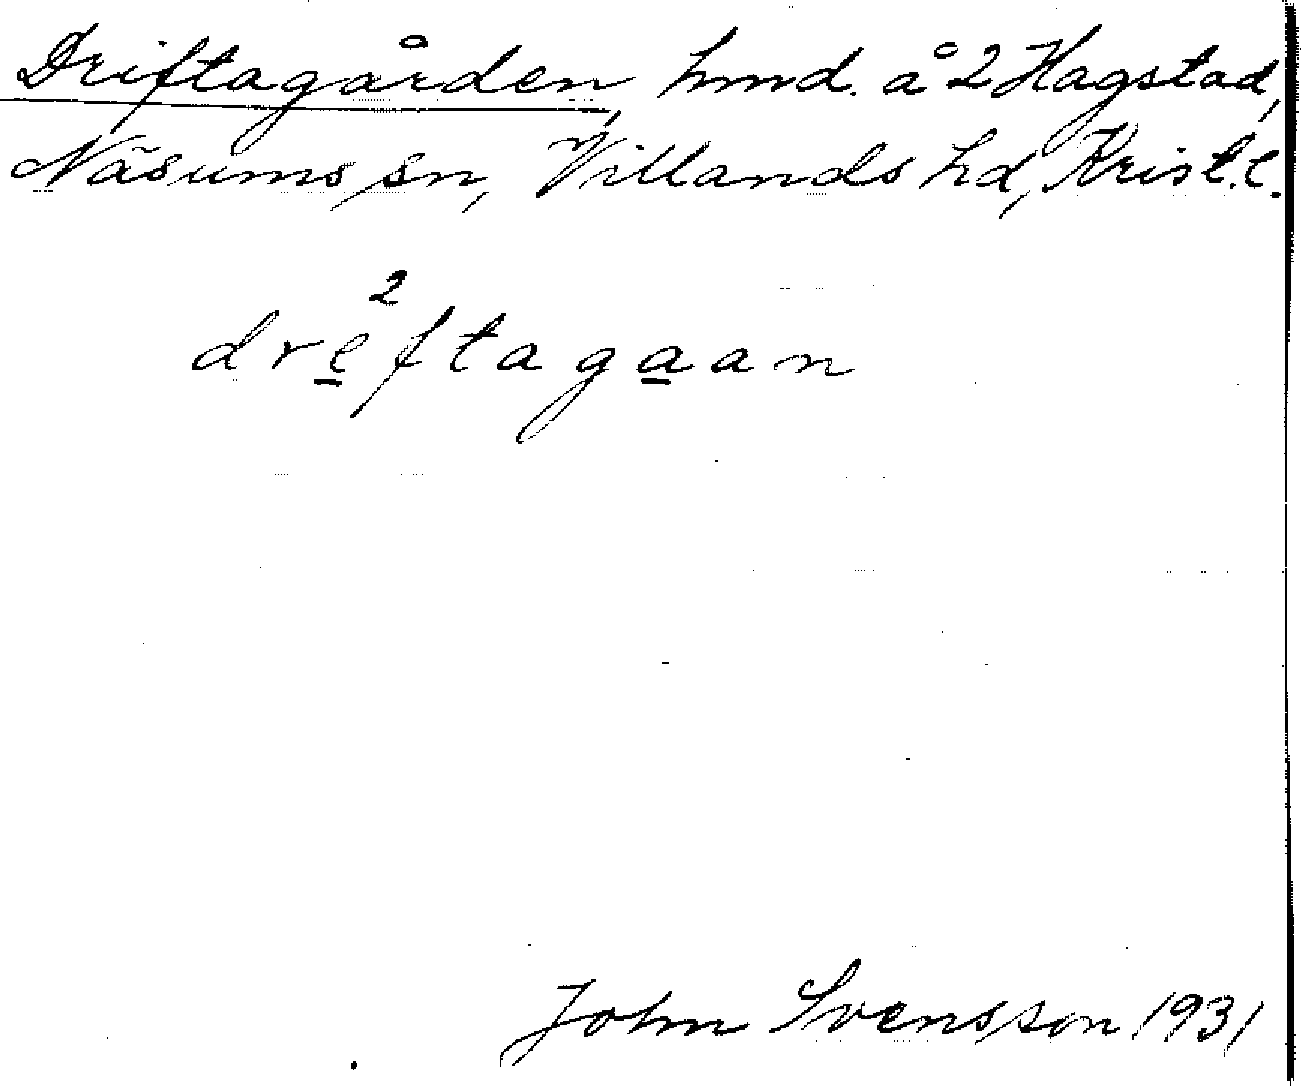 Driftagården, hmd. å 2 Hagstad,
Näsums sn, Villands hd, Krist. l.
dre²ftagaan
John Svensson 1931